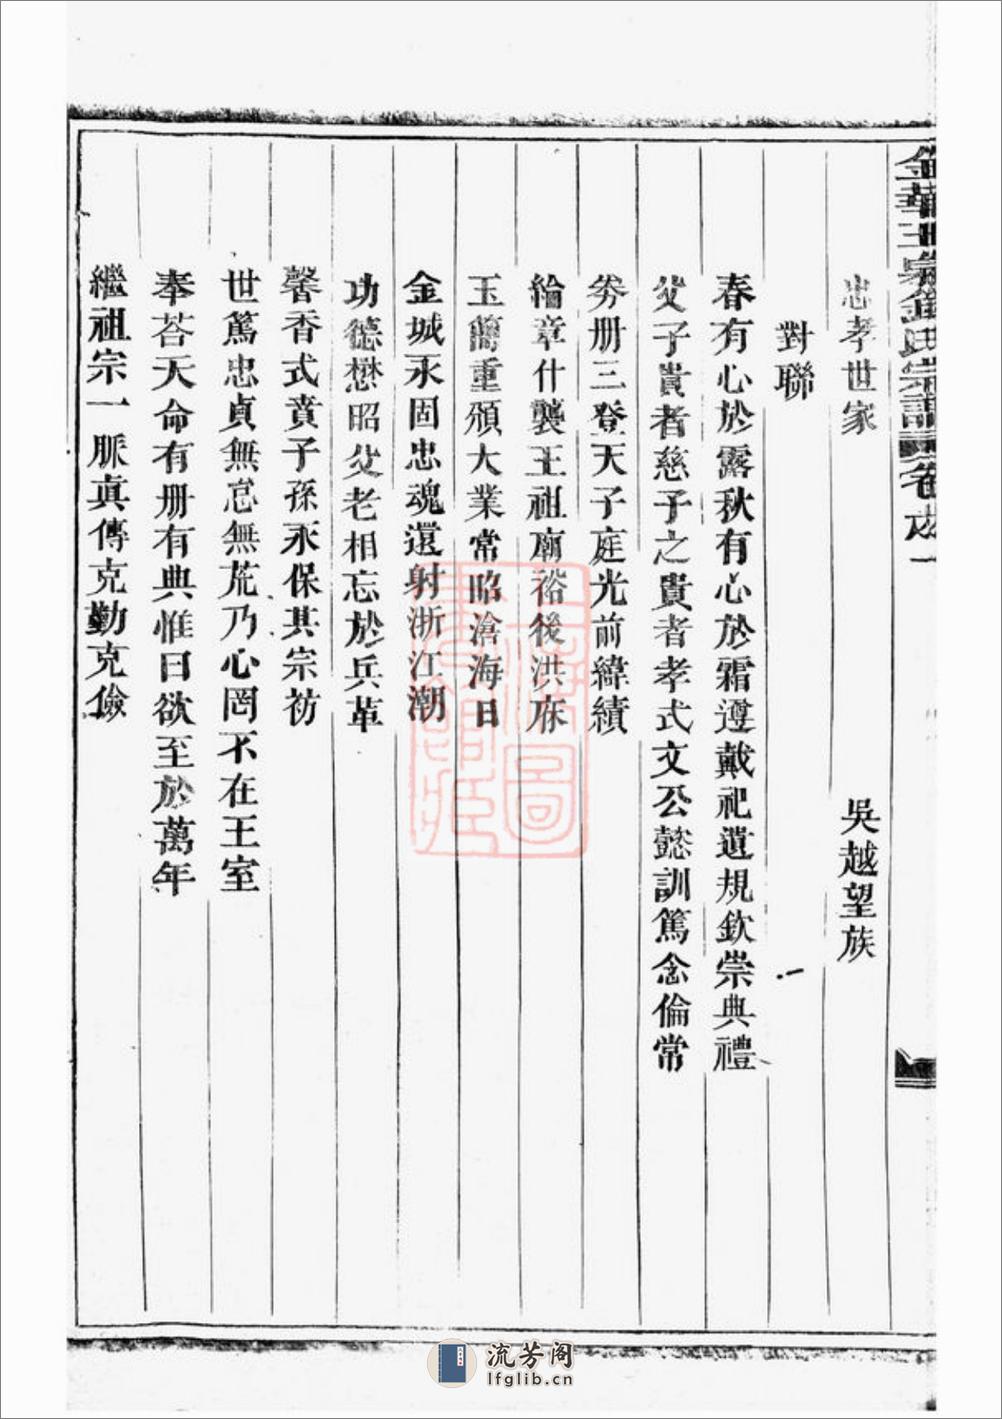 忠孝世家 吳越望族
對聯
春有心於露秋有心於霜遵戴祀遺規欽崇典禮
父子貴者慈子之貴者孝式文公懿訓篤念倫常
券册三登天子庭光前緯績
綸章什襲王祖廟裕後洪庥
玉蕳重頒大業常昭滄海日
金城永固忠魂還射浙江潮
功德懋昭父老相忘於兵革
馨香式賁子孫永保其宗祊
世篤忠貞無怠無荒乃心罔不在王室
奉荅天命有册有典惟曰欲至於萬年
繼祖宗一脈真傳克勤克儉
上海圖書館藏
流芳阁
lfglib.cn